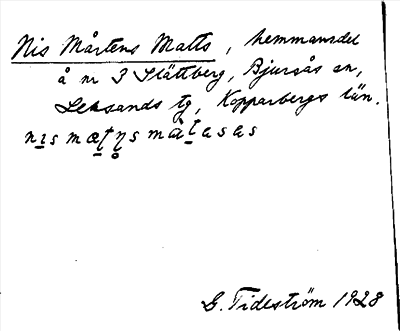 Nis Mårtens Matts, hemmansdel
å nr 3 Slättberg, Bjursås sn,
Leksands tg, Kopparbergs län.
G. Tideström 1928